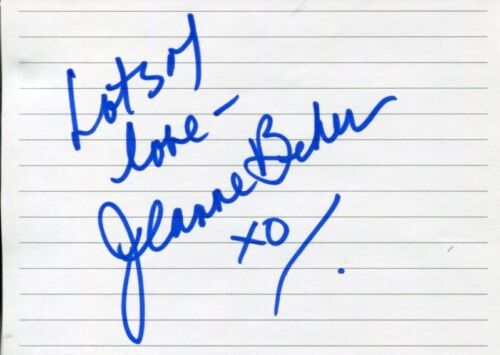 Lots of
love -
Jeanne Beker
XO